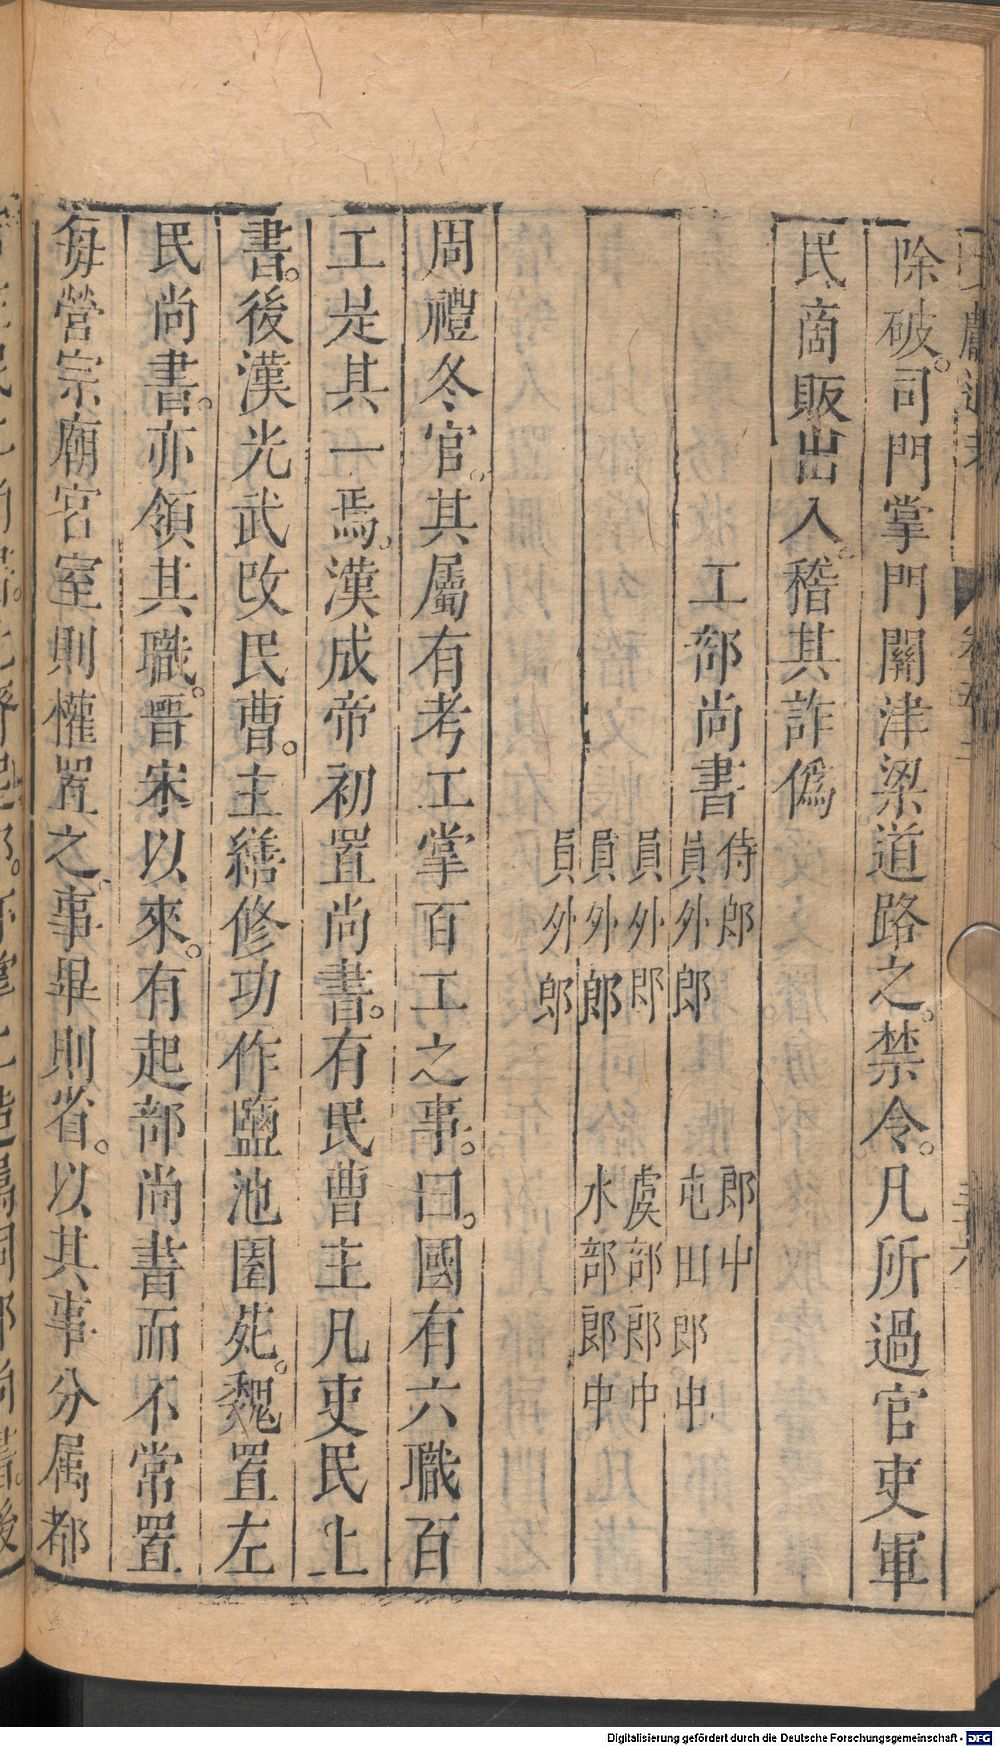 除破司門掌門關津梁道路之禁令凡所過官吏軍
民商販出入稽其詐僞
工部尚書
侍郎 郎中
員外郎 屯田郎中
員外郎 虞部郎中
員外郎 水部郎中
員外郎
周禮冬官其屬有考工掌百工之事曰國有六職百
工是其一焉漢成帝初置尚書有民曹主凡吏民上
書後漢光武改民曹主繕修功作鹽池園苑魏置左
民尚書亦領其職晉宋以來有起部尚書而不常置
每營宗廟宮室則權置之事畢則省以其事分属都
Digitalisierung gefördert durch die Deutsche Forschungsgemeinschaft - DFG